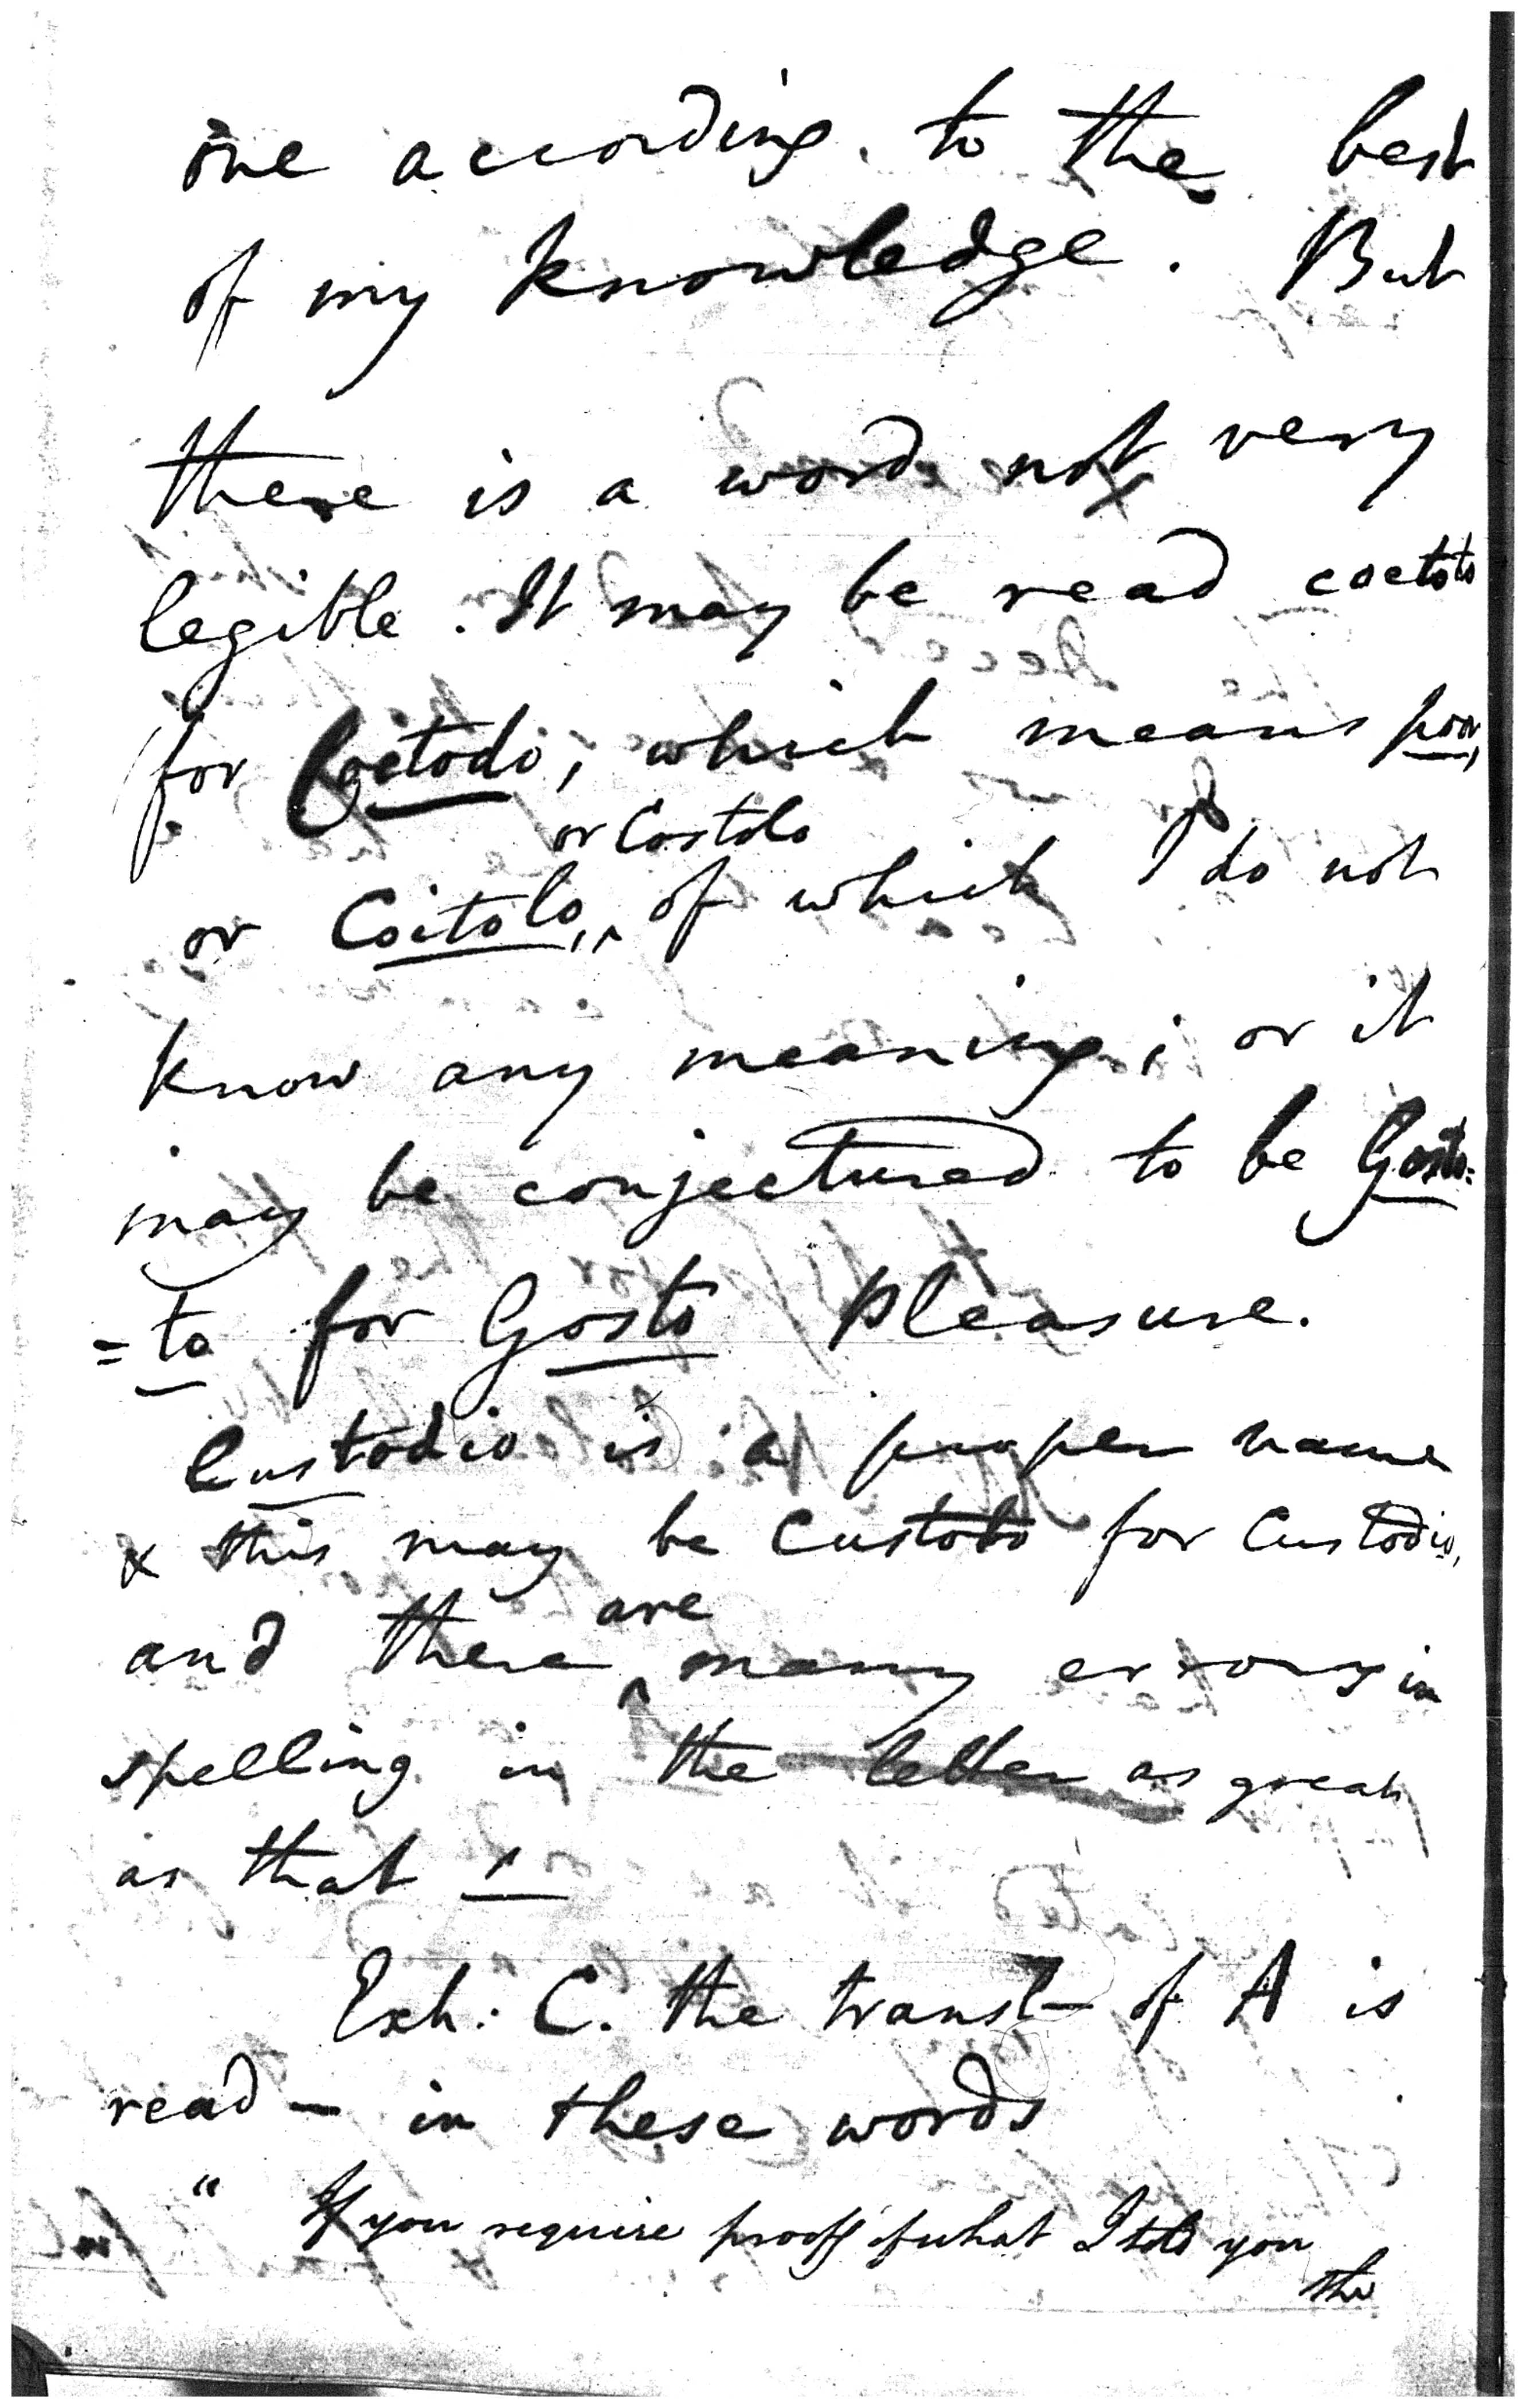 one according to the best
of my knowledge. But
there is a word not very
legible. It may be read coctoto
for Coetodo, which means poor,
or Costolo
or Coitolo, of which I do not
know any meaning; or it
may be conjectured to be Gosto=
=to for Gosto pleasure.
Custodio is a proper name
& this may be Custoto for Custodio,
and there are many errors in
spelling in the letter as great
as that
Exh: C. the transl— of A is
read — in these words
" If you require proof of what I told you
the